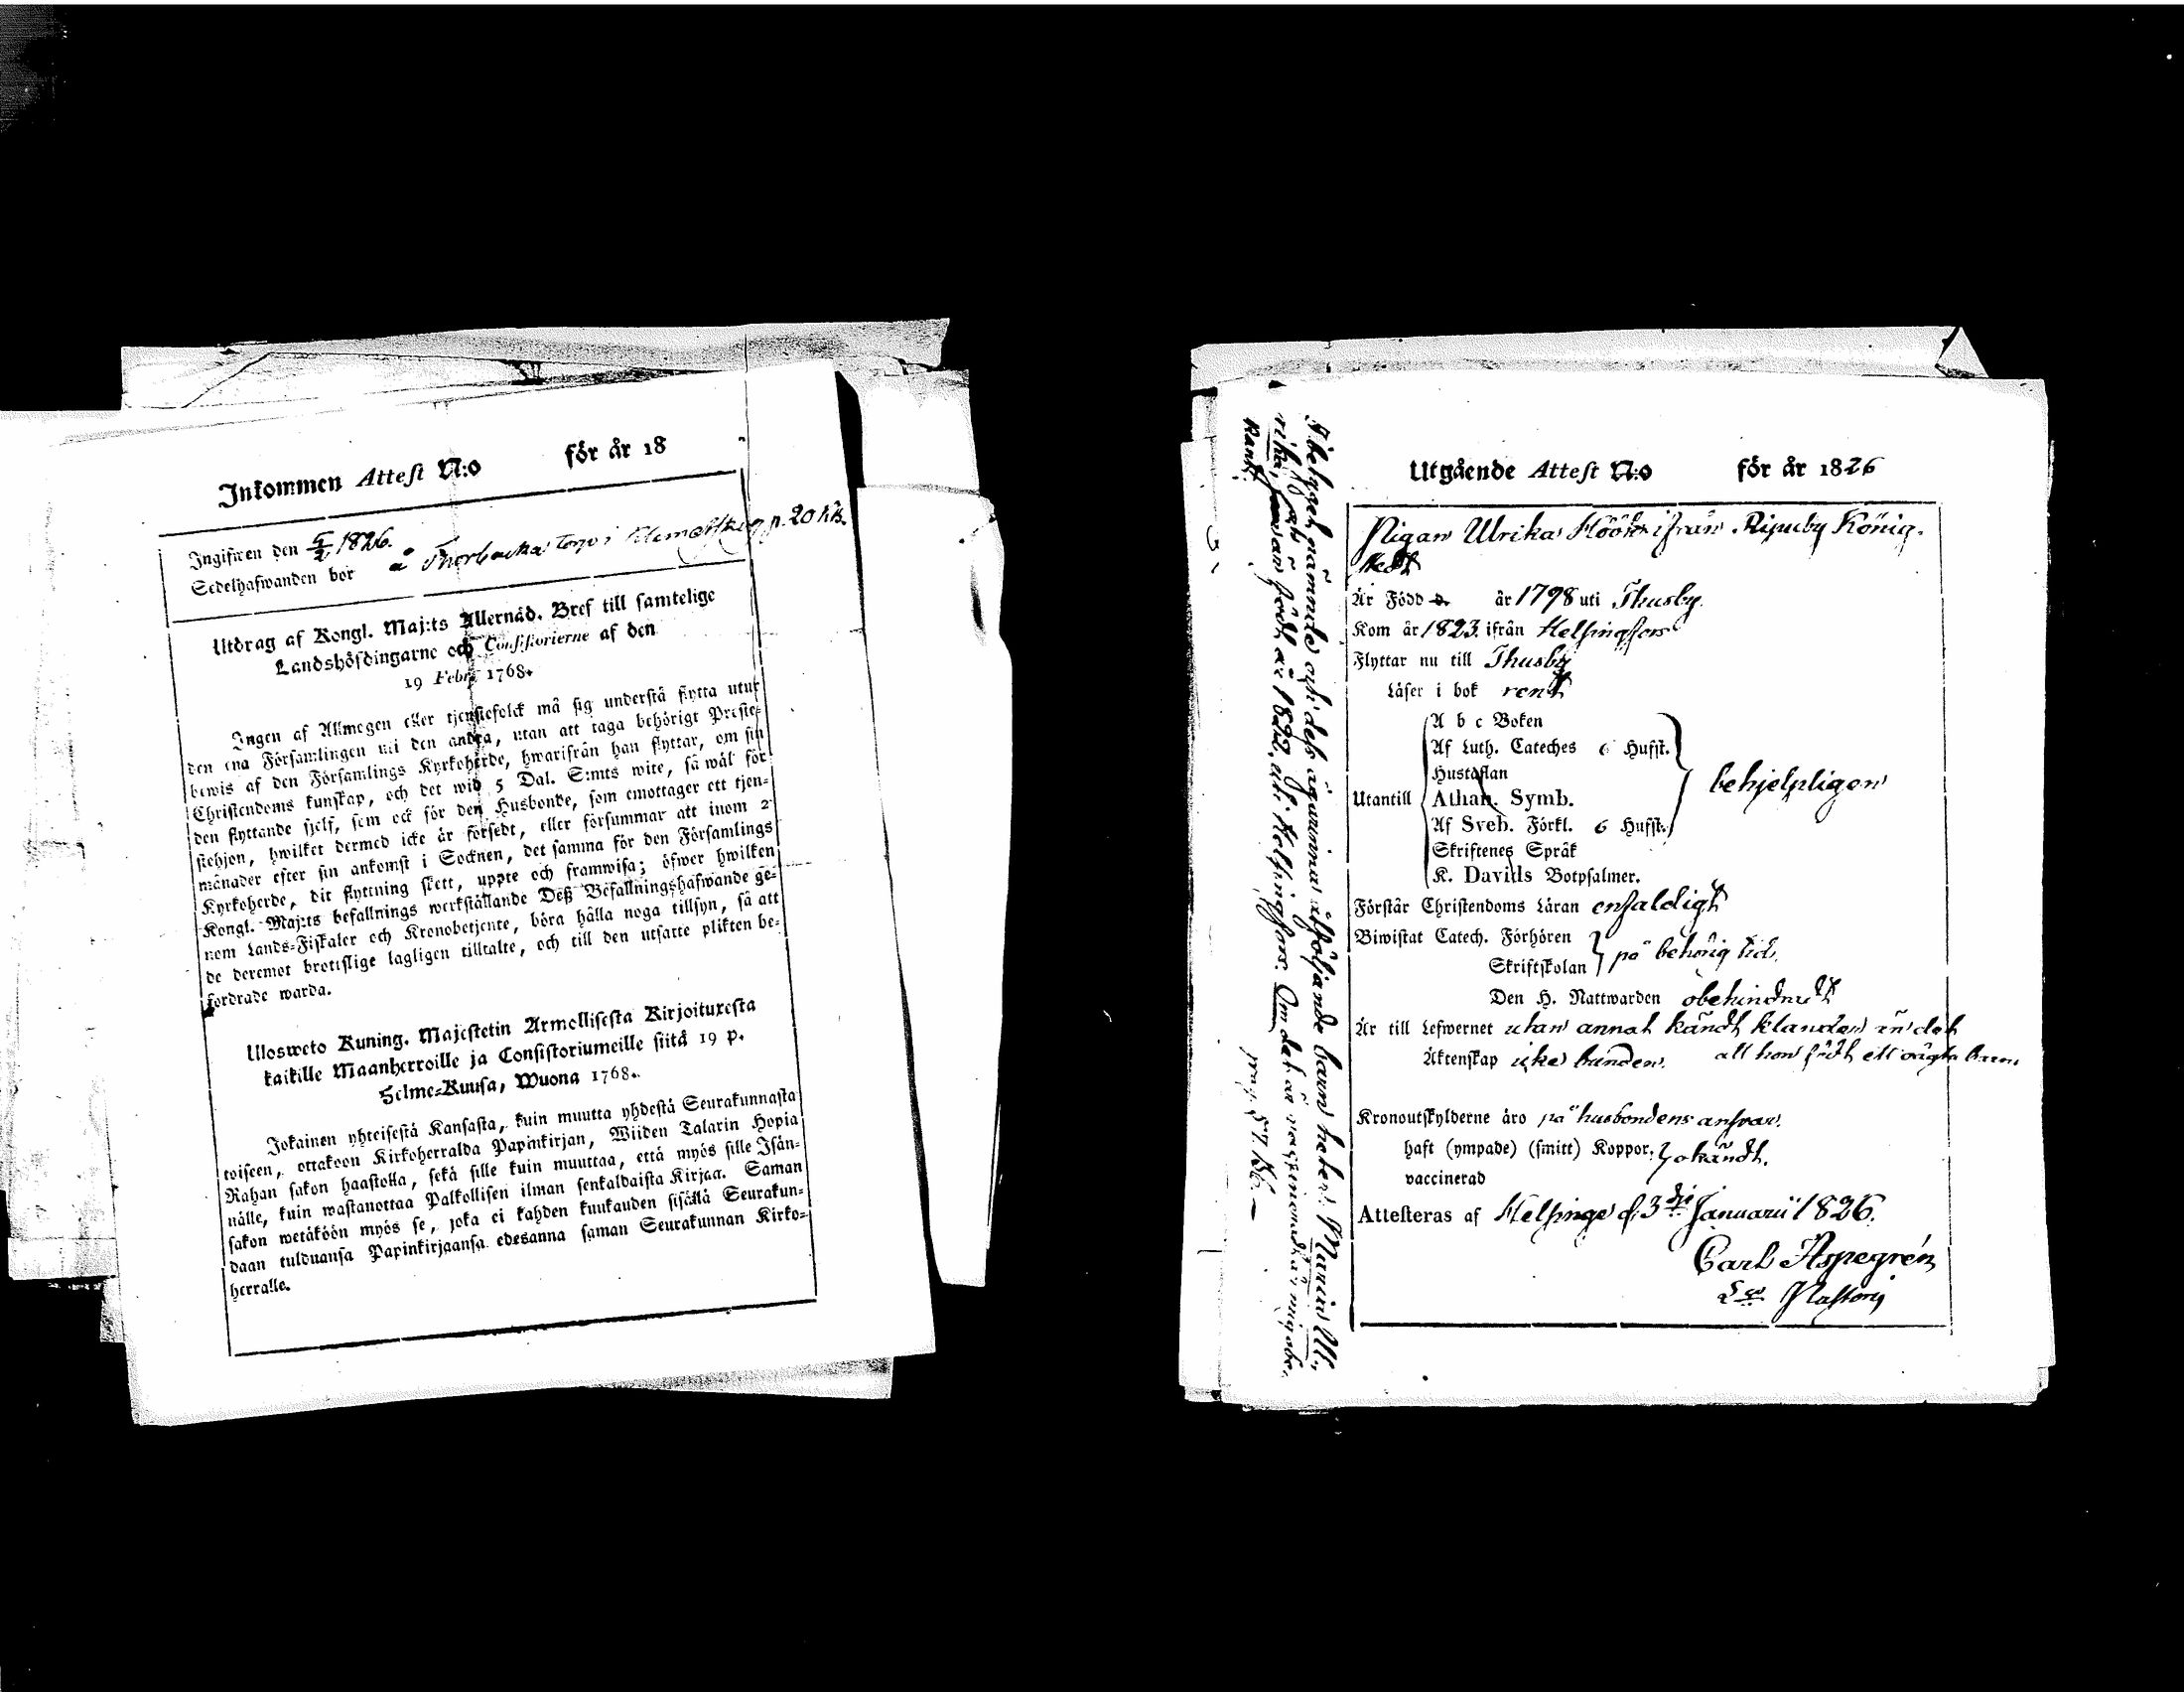 Inkommen Attest N:o för år 18
Ingifwen den 5/2 1826.
Sedelhafwanden bor å Thorbacka torp i p. 20 kk.
Utdrag af Kongl. Maj:ts Allernåd. Bref till samtelige
Landshöfdingarne och Consistorierne af den
19 Febr. 1768.
Ingen af Allmogen eller tjenstefolck må sig understå flytta utur
den ena Församlingen uti den andra, utan att taga behörigt Preste-
bewis af den Församlings Kyrkoherde, hwarifrån han flyttar, om sin
Christendoms kunskap, och det wid 5 Dal. S:mts wite, så wäl för
den flyttande sjelf, som ock för den Husbonde, som emottager ett tjen-
stehjon, hwilket dermed icke är försedt, eller försummar att inom 2
månader efter sin ankomst i Socknen, det samma för den Församlings
Kyrkoherde, dit flyttning skett, uppte och framwisa; öfwer hwilken
Kongl. Maj:ts befallnings werkställande Deß Befallningshafwande ge-
nom Lands-Fiskaler och Kronobetjente, böra hålla noga tillsyn, så att
de deremot brottslige lagligen tilltalte, och till den utsatte plikten be-
fordrade warda.
Ulosweto Kuning. Majestetin Armollisesta Kirjoituxesta
kaikille Maanherroille ja Consistoriumeille siitä 19 p.
Helme-Kuusa, Wuona 1768.
Jokainen yhteisestä Kansasta, kuin muutta yhdestä Seurakunnasta
toiseen, ottakoon Kirkoherralda Papinkirjan, Wiiden Talarin Hopia
Rahan sakon haastolla, sekä sille kuin muuttaa, että myös sille Isän-
nälle, kuin wastanottaa Palkollisen ilman senkaldaista Kirjaa. Saman
sakon wetäköön myös se, joka ei kahden kuukauden sisällä Seurakun-
daan tulduansa Papinkirjaansa edesanna saman Seurakunnan Kirko-
herralle.
Utgående Attest N:o för år 1826
Pigan Ulrika Höök ifrån Ripuby König-
stedt
Är Född d. år 1798 uti Thusby.
Kom år 1823. ifrån Helsingfors
Flyttar nu till Thusby
Läser i bok rent
A b c Boken
Af Luth. Cateches 6 Hufst.
Hustaflan
Utantill Athan. Symb. behjelpligen
Af Sveb. Förkl. 6 Hufst.
Skriftenes Språk
K. Davids Botpsalmer.
Förstår Christendoms Läran enfaldigt
Biwistat Catech. Förhören
Skriftskolan på behörig tid.
Den H. Nattwarden obehindradt
Är till Lefwernet utan annat kändt klander än det
att hon födt ett oägta barn
Äktenskap icke bunden.
Kronoutskylderne äro på husbondens answar.
haft (ympade) (smitt) Koppor. okändt.
vaccinerad
Attesteras af Helsinge d. 3die Januarii 1826.
Carl Aspegrén
Pastorij
nämnde och deß qwinna åtföljande barn heter: Maria Ul-
rika, och är född år 1822. uti Helsingfors. Om det är vaccineradt är mig obe-
kant.